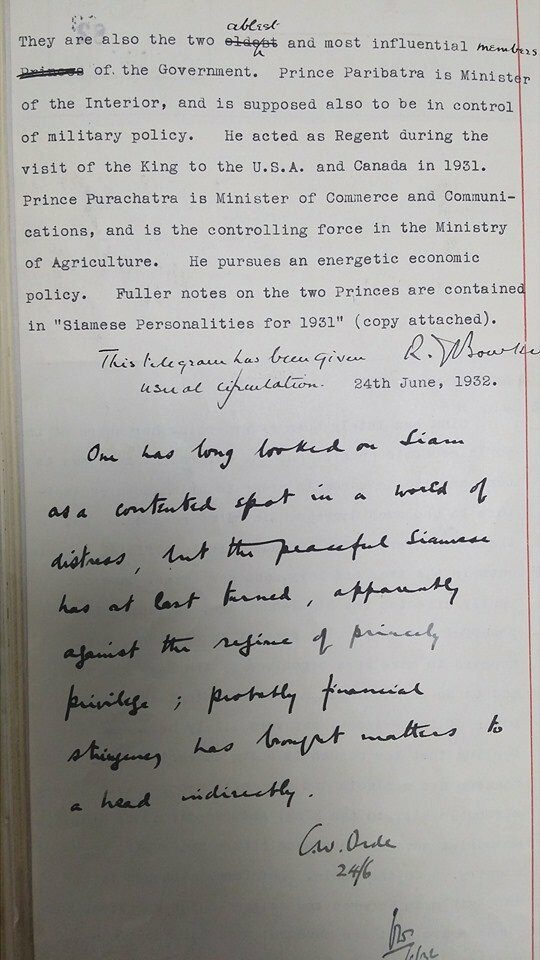 They are also the two ablest and most influential members
of the Government. Prince Paribatra is Minister
of the Interior, and is supposed also to be in control
of military policy. He acted as Regent during the
visit of the King to the U.S.A. and Canada in 1931.
Prince Purachatra is Minister of Commerce and Communi-
cations, and is the controlling force in the Ministry
of Agriculture. He pursues an energetic economic
policy. Fuller notes on the two Princes are contained
in "Siamese Personalities for 1931" (copy attached).
This telegram has been given R. J. Bowker
usual circulation. 24th June, 1932.
One has long looked on Siam
as a contented spot in a world of
distress, but the peaceful Siamese
has at last turned, apparently
against the regime of princely
privilege; probably financial
stringency has brought matters to
a head indirectly.
C.W. Orde
24/6